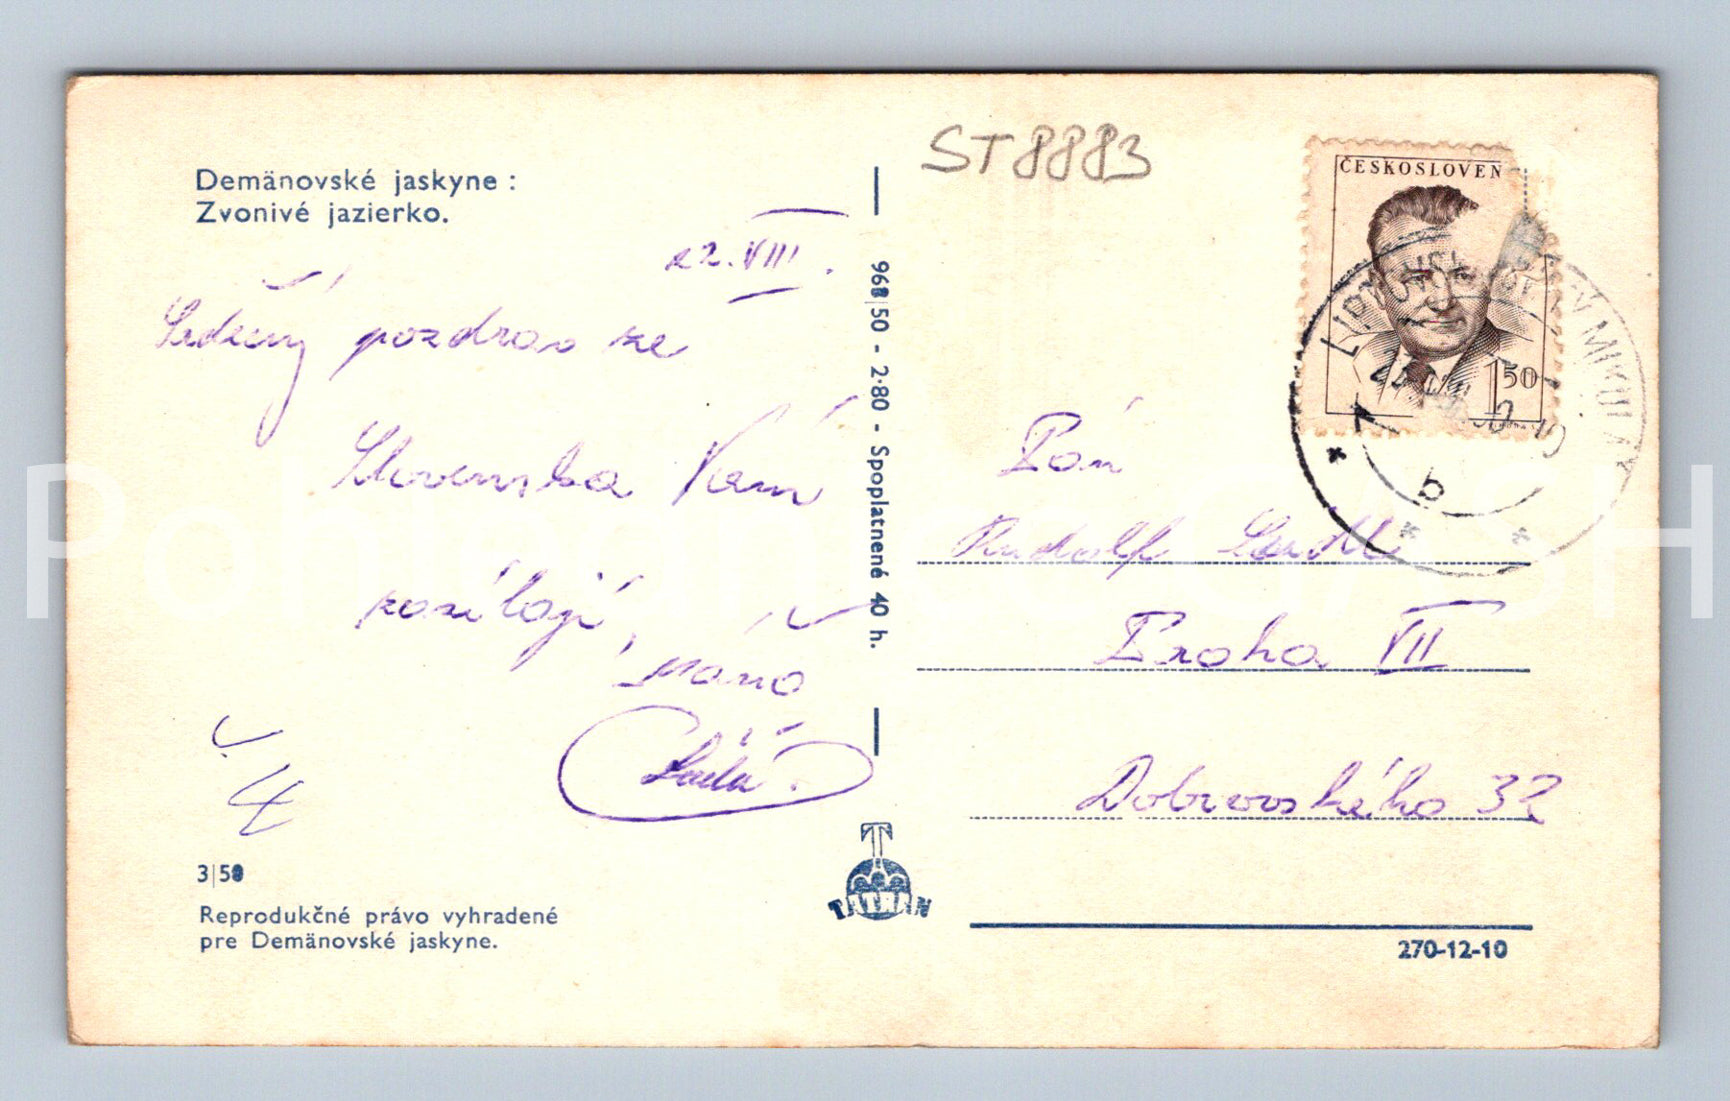 Demänovské jaskyne :
Zvonivé jazierko.
22.VIII.
Srdečný pozdrav ze
Slovenska Vám
zasílají,
Láďa.
3|50
Reprodukčné právo vyhradené
pre Demänovské jaskyne.
968|50 - 2·80 - Spoplatnené 40 h.
TATRAN
ST8883
ČESKOSLOVEN
1 50
LIPTOVSKÝ SV. MIKULÁŠ
7
b
Pán
Rudolf
Praha VII
Dobrovského 32
270-12-10